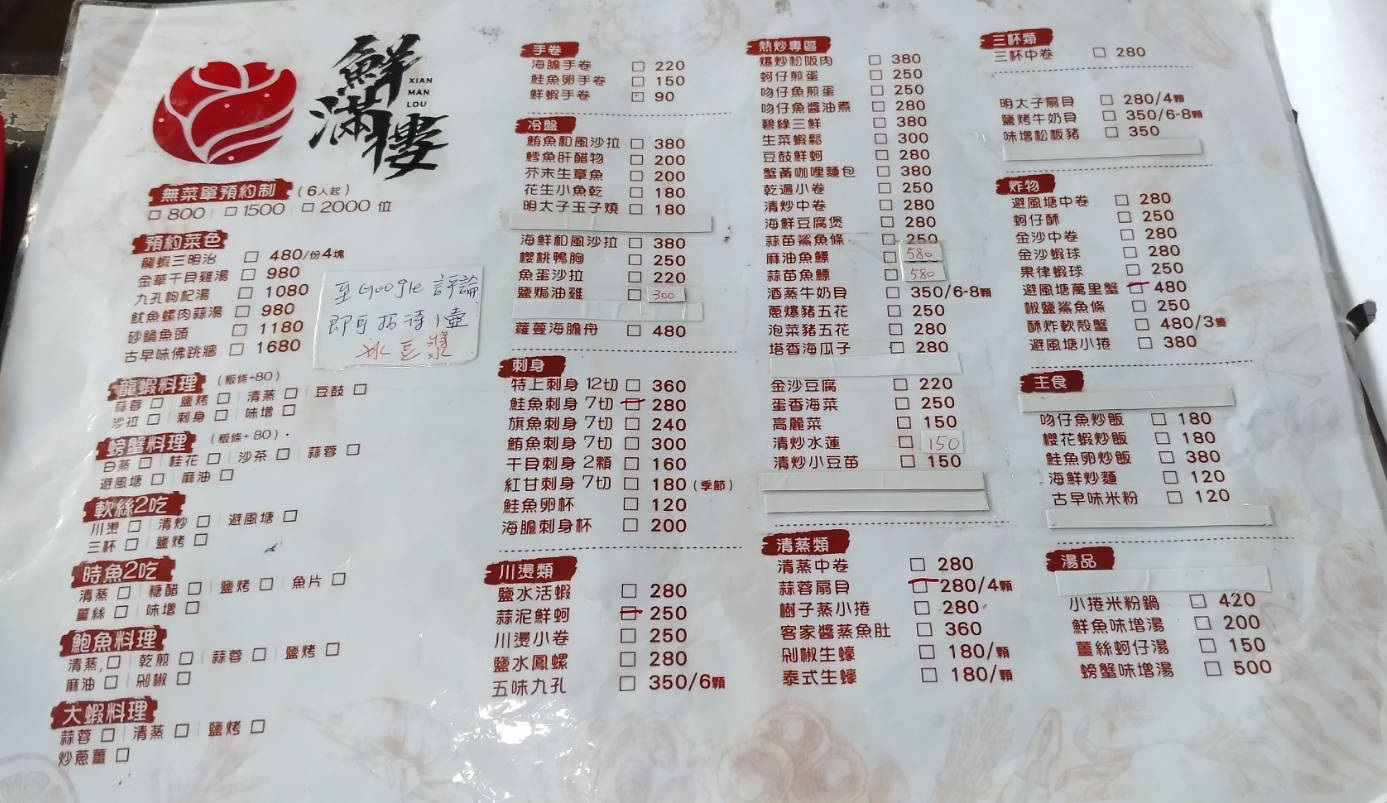 鮮滿樓
XIAN
MAN
LOU
無菜單預約制 (6人起)
□ 800 □ 1500 □ 2000 位
預約菜色
龍蝦三明治 □ 480/份4塊
金華干貝雞湯 □ 980
九孔枸杞湯 □ 1080
魷魚螺肉蒜湯 □ 980
砂鍋魚頭 □ 1180
古早味佛跳牆 □ 1680
至Google 評論
即可招待1壺
冰豆漿
龍蝦料理 (粄條+80)
蒜蓉 □ 鹽烤 □ 清蒸 □ 豆鼓 □
沙拉 □ 刺身 □ 味增 □
螃蟹料理 (粄條+80)
白蒸 □ 桂花 □ 沙茶 □ 蒜蓉 □
避風塘 □ 麻油 □
軟絲2吃
川燙 □ 清炒 □ 避風塘 □
三杯 □ 鹽烤 □
時魚2吃
清蒸 □ 糖醋 □ 鹽烤 □ 魚片 □
薑絲 □ 味增 □
鮑魚料理
清蒸 □ 乾煎 □ 蒜蓉 □ 鹽烤 □
麻油 □ 剁椒 □
大蝦料理
蒜蓉 □ 清蒸 □ 鹽烤 □
炒蔥薑 □
手卷
海膽手卷 □ 220
鮭魚卵手卷 □ 150
鮮蝦手卷 □ 90
冷盤
鮪魚和風沙拉 □ 380
鱈魚肝醋物 □ 200
芥末生章魚 □ 200
花生小魚乾 □ 180
明太子玉子燒 □ 180
海鮮和風沙拉 □ 380
櫻桃鴨胸 □ 250
魚蛋沙拉 □ 220
鹽焗油雞 □ 300
蘿蔓海膽舟 □ 480
刺身
特上刺身 12切 □ 360
鮭魚刺身 7切 □ 280
旗魚刺身 7切 □ 240
鮪魚刺身 7切 □ 300
干貝刺身 2顆 □ 160
紅甘刺身 7切 □ 180 (季節)
鮭魚卵杯 □ 120
海膽刺身杯 □ 200
川燙類
鹽水活蝦 □ 280
蒜泥鮮蚵 □ 250
川燙小卷 □ 250
鹽水鳳螺 □ 280
五味九孔 □ 350/6顆
熱炒專區
爆炒松阪肉 □ 380
蚵仔煎蛋 □ 250
吻仔魚煎蛋 □ 250
吻仔魚醬油煮 □ 280
碧綠三鮮 □ 380
生菜蝦鬆 □ 300
豆鼓鮮蚵 □ 280
蟹黃咖哩麵包 □ 380
乾逼小卷 □ 250
清炒中卷 □ 280
海鮮豆腐煲 □ 280
蒜苗鯊魚條 □ 250
麻油魚鰾 □ 580
蒜苗魚鰾 □ 580
酒蒸牛奶貝 □ 350/6-8顆
蔥爆豬五花 □ 250
泡菜豬五花 □ 280
塔香海瓜子 □ 280
金沙豆腐 □ 220
蛋香海菜 □ 250
高麗菜 □ 150
清炒水蓮 □ 150
清炒小豆苗 □ 150
清蒸類
清蒸中卷 □ 280
蒜蓉扇貝 □ 280/4顆
樹子蒸小捲 □ 280
客家醬蒸魚肚 □ 360
剁椒生蠔 □ 180/顆
泰式生蠔 □ 180/顆
三杯類
三杯中卷 □ 280
明太子扇貝 □ 280/4顆
鹽烤牛奶貝 □ 350/6-8顆
味增松板豬 □ 350
炸物
避風塘中卷 □ 280
蚵仔酥 □ 250
金沙中卷 □ 280
金沙蝦球 □ 280
果律蝦球 □ 250
避風塘萬里蟹 □ 480
椒鹽鯊魚條 □ 250
酥炸軟殼蟹 □ 480/3隻
避風塘小捲 □ 380
主食
吻仔魚炒飯 □ 180
櫻花蝦炒飯 □ 180
鮭魚卵炒飯 □ 380
海鮮炒麵 □ 120
古早味米粉 □ 120
湯品
小捲米粉鍋 □ 420
鮮魚味增湯 □ 200
薑絲蚵仔湯 □ 150
螃蟹味增湯 □ 500